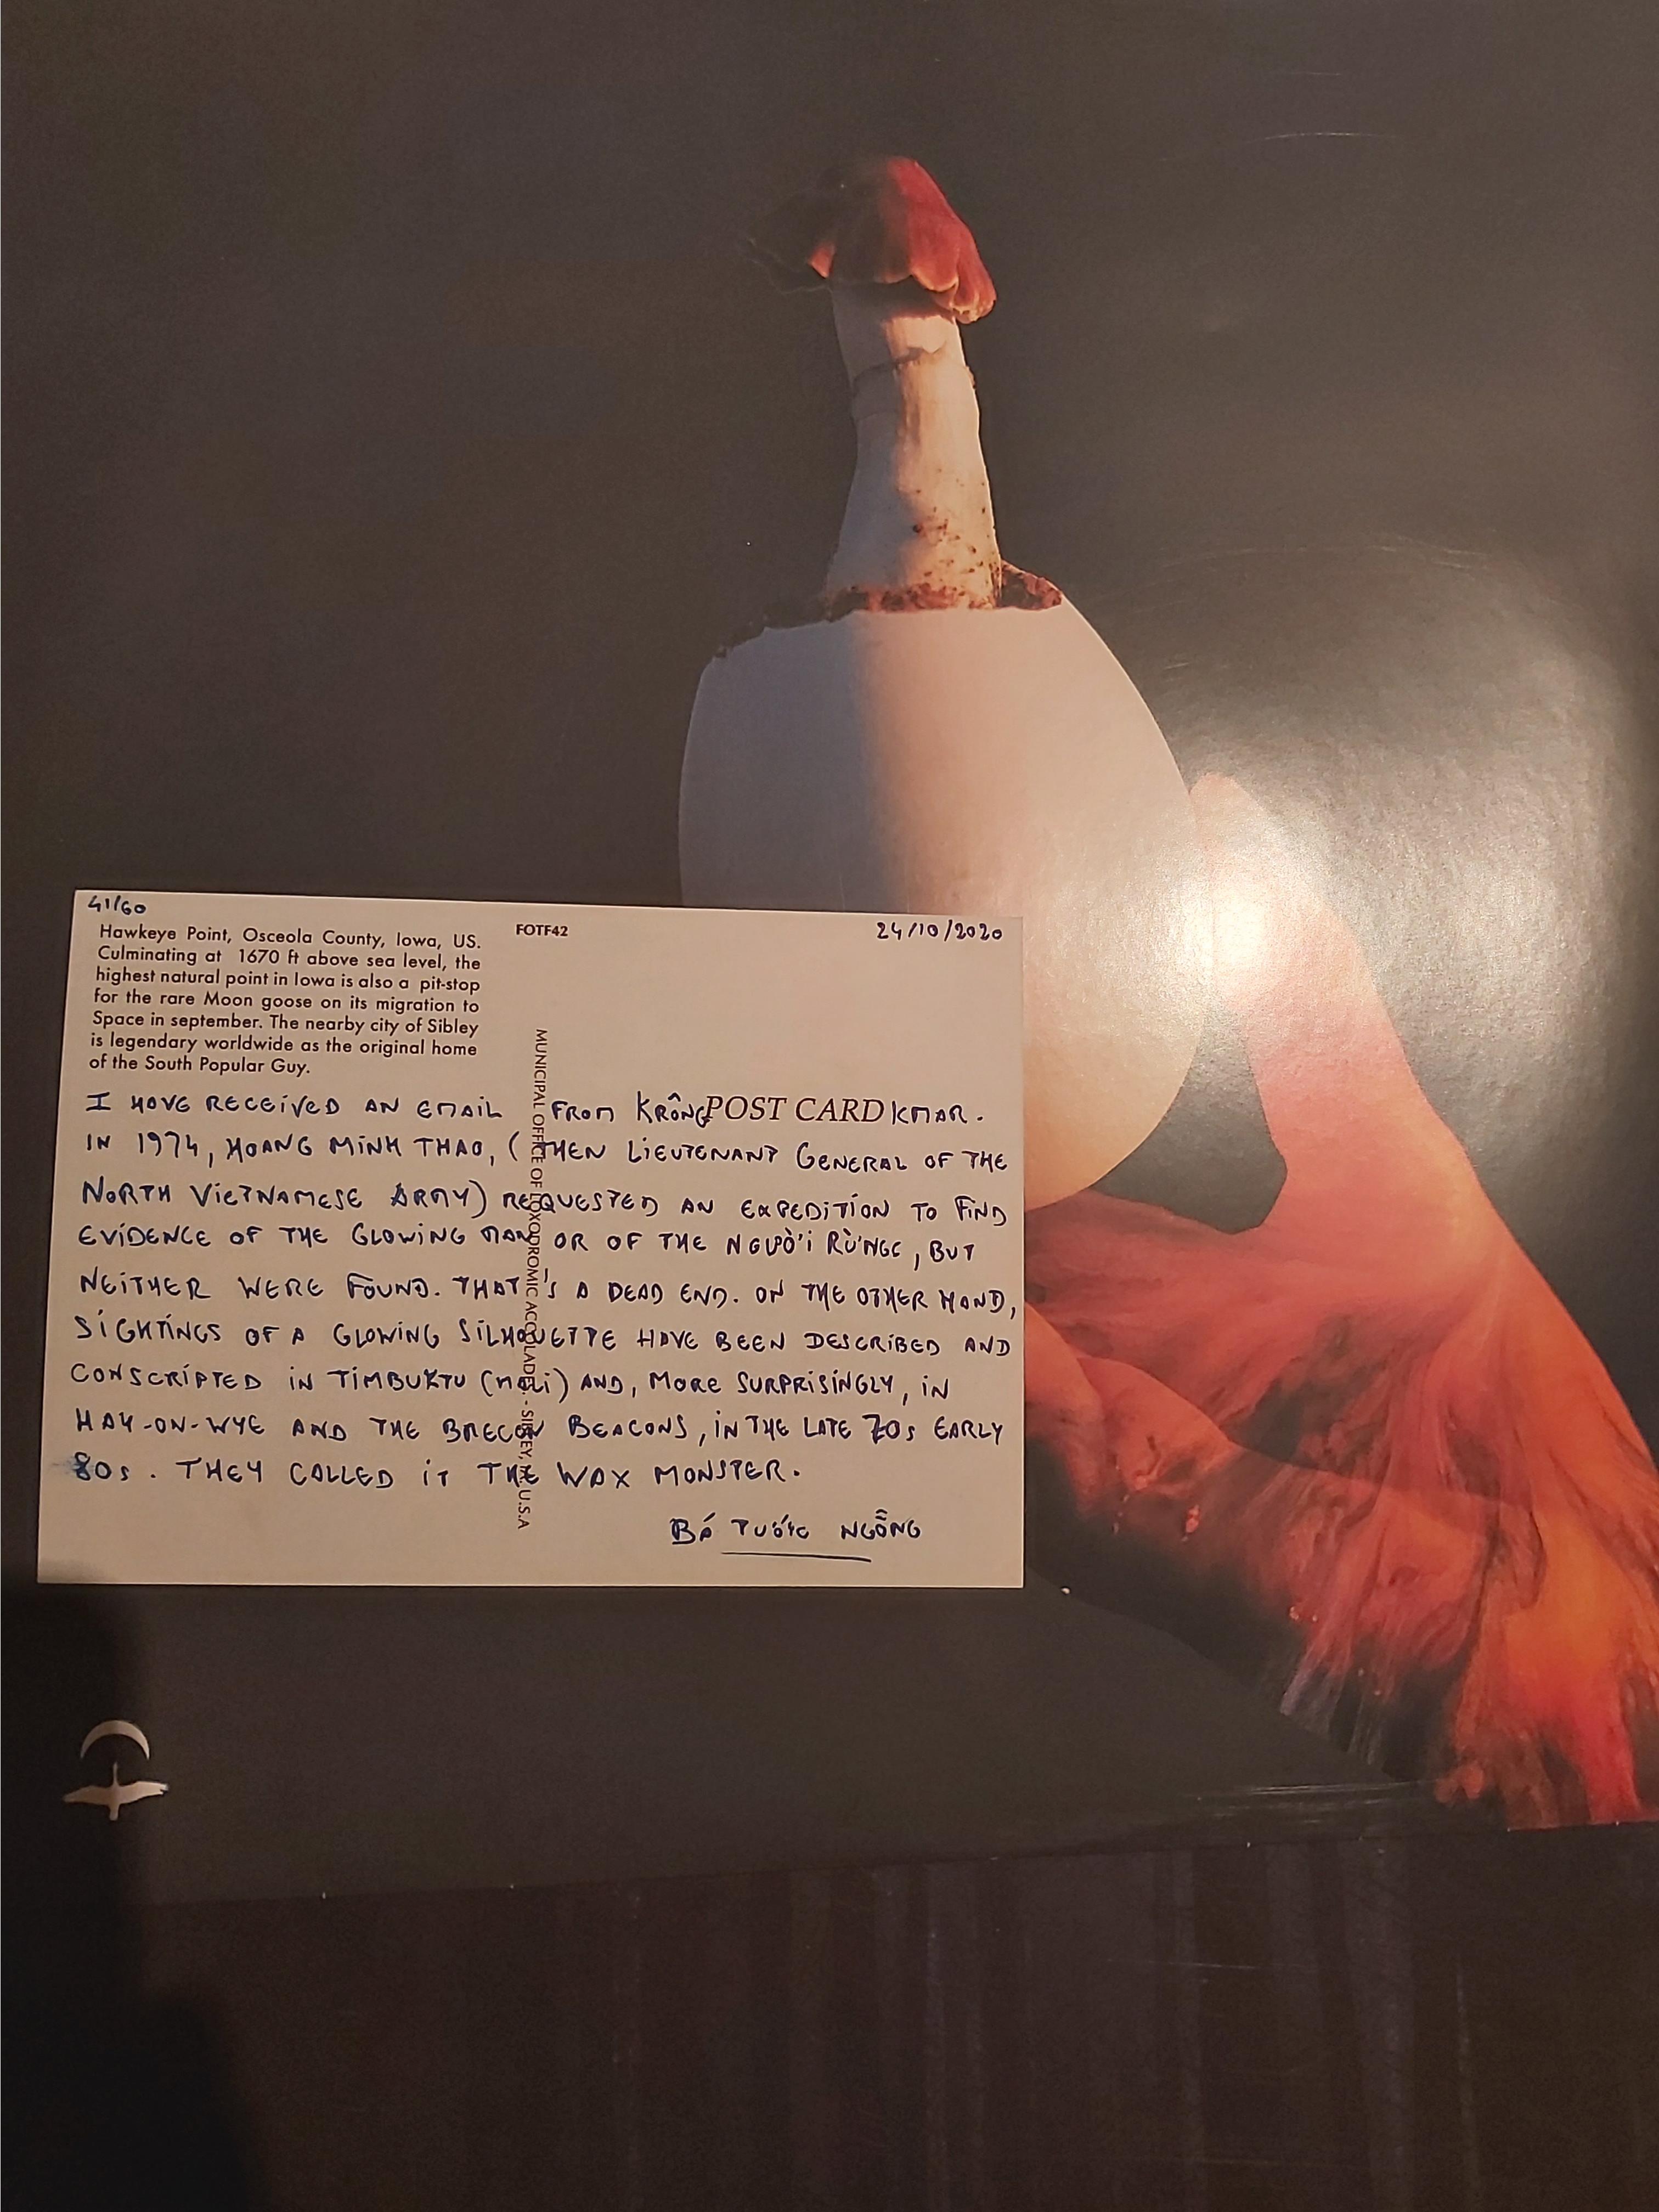 41/60
Hawkeye Point, Osceola County, Iowa, US.
Culminating at 1670 ft above sea level, the
highest natural point in Iowa is also a pit-stop
for the rare Moon goose on its migration to
Space in september. The nearby city of Sibley
is legendary worldwide as the original home
of the South Popular Guy.
FOTF42
24/10/2020
MUNICIPAL OFFICE OF LOXODROMIC ACCOLADES - SIBLEY, U.S.A
POST CARD
I HAVE RECEIVED AN EMAIL FROM KRÔNG KMAR.
IN 1974, HOANG MINH THAO, (THEN LIEUTENANT GENERAL OF THE
NORTH VIETNAMESE ARMY) REQUESTED AN EXPEDITION TO FIND
EVIDENCE OF THE GLOWING MAN OR OF THE NGƯỜ'I RỪNGG, BUT
NEITHER WERE FOUND. THAT'S A DEAD END. ON THE OTHER HAND,
SIGHTINGS OF A GLOWING SILHOUETTE HAVE BEEN DESCRIBED AND
CONSCRIPTED IN TIMBUKTU (MALI) AND, MORE SURPRISINGLY, IN
HAY-ON-WYE AND THE BRECON BEACONS, IN THE LATE 70s EARLY
80s. THEY CALLED IT THE WAX MONSTER.
BÁ TƯỚC NGỖNG